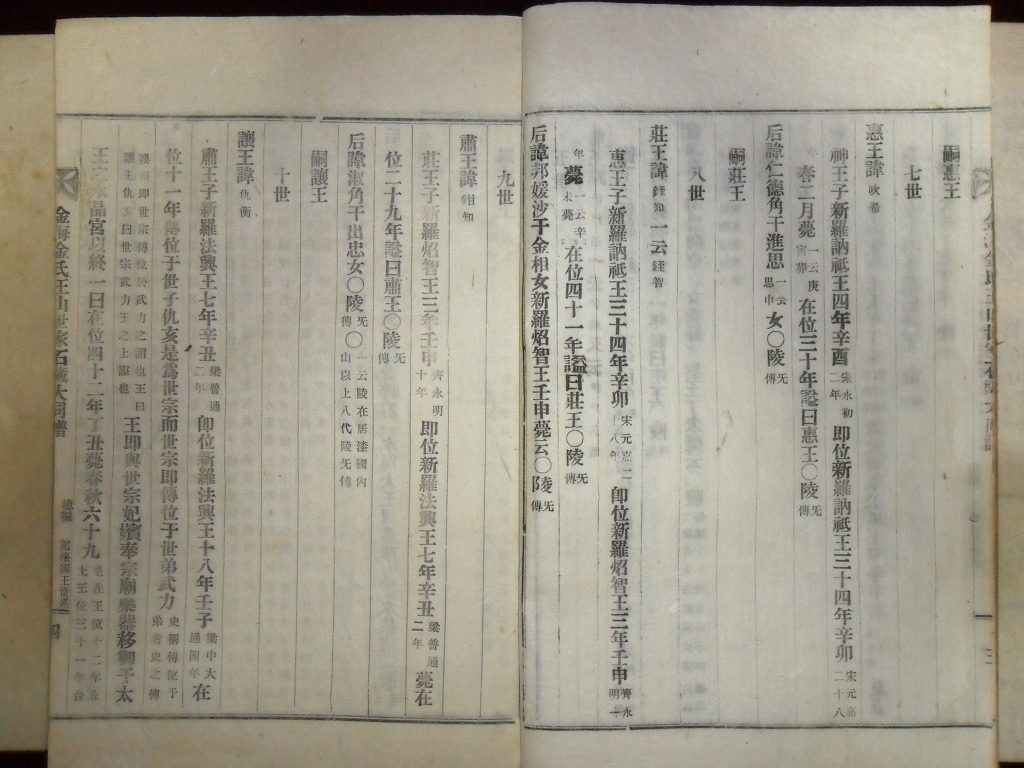 嗣惠王
七世
惠王諱吹希
神王子新羅訥祗王四年辛酉宋永初二年即位新羅訥祗王三十四年辛卯宋元嘉二十八
年春二月薨一云庚寅葬在位三十年謚曰惠王〇陵旡傳
后諱仁德角干進思一云思申女〇陵旡傳
嗣莊王
八世
莊王諱銍知一云銍智
惠王子新羅訥祗王三十四年辛卯宋元嘉二十八年即位新羅炤智王三年壬申齊永明十
年薨一云辛未薨在位四十一年謚曰莊王〇陵旡傳
后諱邦媛沙干金相女新羅炤智王壬申薨云〇陵旡傳
九世
肅王諱鉗知
莊王子新羅炤智王三年壬申齊永明十年即位新羅法興王七年辛丑梁普通二年薨在
位二十九年謚曰肅王〇陵旡傳
后諱淑角干出忠女〇陵旡傳一云陵在居漆國內山以上八代陵旡傳
嗣讓王
十世
讓王諱仇衡
肅王子新羅法興王七年辛丑梁普通二年即位新羅法興王十八年壬子梁中大通四年在
位十一年傳位于世子仇亥是爲世宗而世宗即傳位于世弟武力史稱傳位于弟者史之傳
王即與世宗妃嬪奉宗廟樂器移御于太
王之水晶宮以終一曰在位四十二年丁丑薨春秋六十九在王位十二年在上王位三十一年合
金海金氏王山世家石藏大同譜
駕洛國王世系
四
三